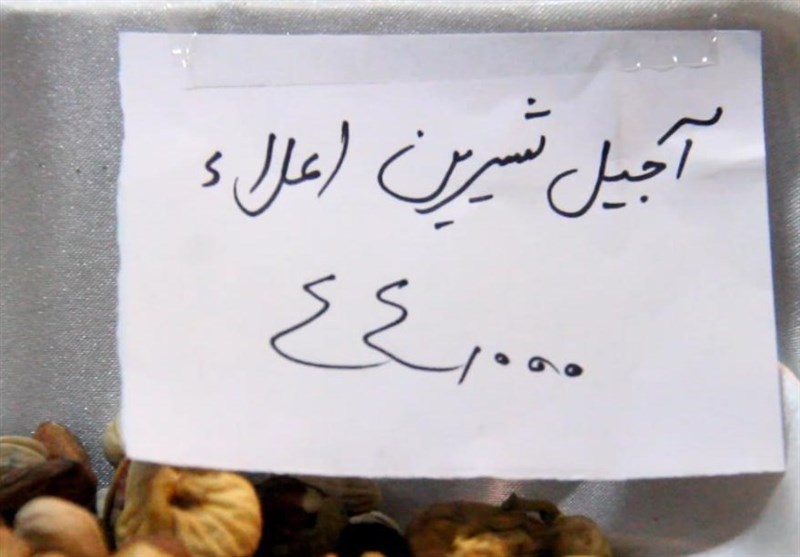 آجیل شیرین اعلاء
٤٤,۰۰۰